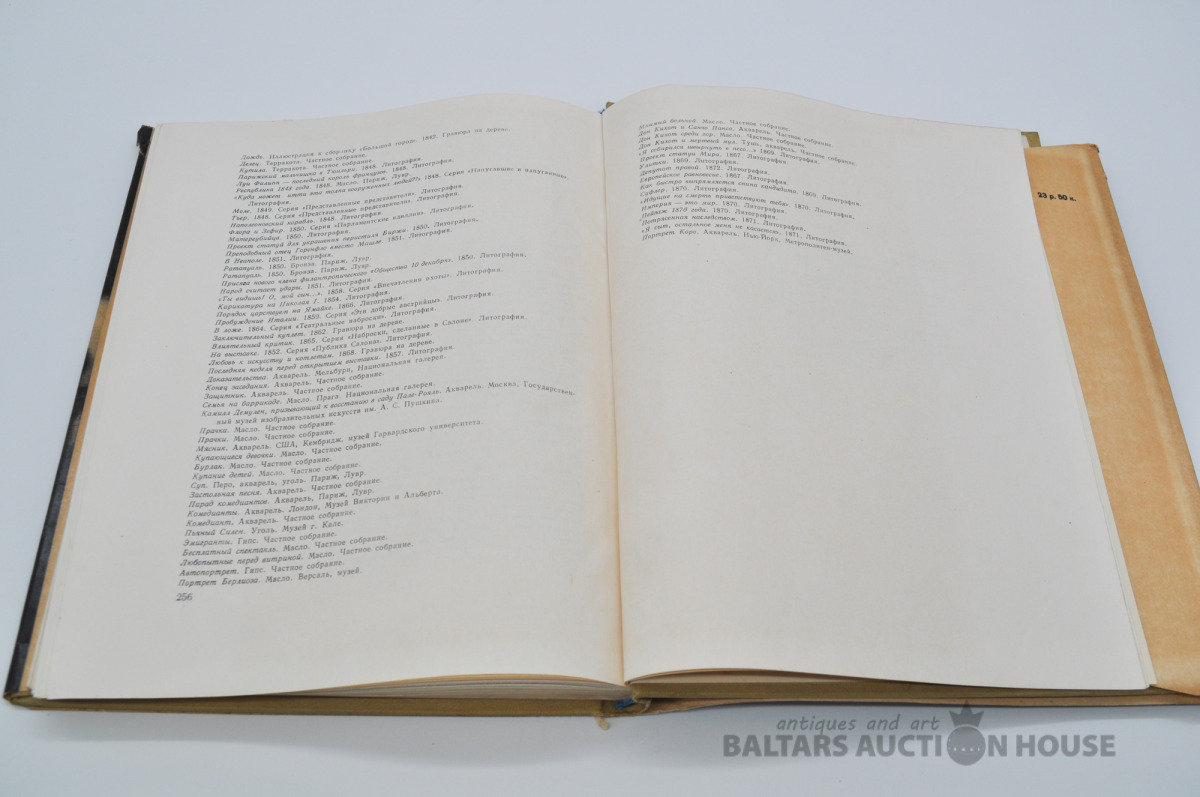 Дождь. Иллюстрация к сборнику «Большой город». 1842. Гравюра на дереве.
Делец. Терракота. Частное собрание.
Кутила. Терракота. Частное собрание.
Парижский мальчишка в Тюильри. 1848. Литография.
Луи Филипп — последний король французов. 1848. Литография.
Республика 1848 года. 1848. Масло. Париж, Лувр.
«Куда может идти эта толпа вооруженных людей?!». 1848. Серия «Напугавшие и напуганные».
Литография.
Моле. 1849. Серия «Представленные представители». Литография.
Тьер. 1848. Серия «Представленные представители». Литография.
Наполеоновский корабль. 1848. Литография.
Флора и Зефир. 1850. Серия «Парламентские идиллии». Литография.
Матереубийца. 1850. Литография.
Проект статуи для украшения перистиля Биржи. 1850. Литография.
Преподобный отец Горенфло вместо Мишле. 1851. Литография.
В Неаполе. 1851. Литография.
Ратапуаль. 1850. Бронза. Париж, Лувр.
Ратапуаль. 1850. Бронза. Париж, Лувр.
Присяга нового члена филантропического «Общества 10 декабря». 1850. Литография.
Народ считает удары. 1851. Литография.
«Ты видишь! О, мой сын...». 1858. Серия «Впечатления охоты». Литография.
Карикатура на Николая I. 1854. Литография.
Порядок царствует на Ямайке. 1866. Литография.
Пробуждение Италии. 1859. Серия «Эти добрые австрийцы». Литография.
В ложе. 1864. Серия «Театральные наброски». Литография.
Заключительный куплет. 1862. Гравюра на дереве.
Влиятельный критик. 1865. Серия «Наброски, сделанные в Салоне». Литография.
На выставке. 1852. Серия «Публика Салона». Литография.
Любовь к искусству и котлетам. 1868. Гравюра на дереве.
Последняя неделя перед открытием выставки. 1857. Литография.
Доказательства. Акварель. Мельбурн, Национальная галерея.
Конец заседания. Акварель. Частное собрание.
Защитник. Акварель. Частное собрание.
Семья на баррикаде. Масло. Прага. Национальная галерея.
Камилл Демулен, призывающий к восстанию в саду Пале-Рояль. Акварель. Москва, Государствен-
ный музей изобразительных искусств им. А. С. Пушкина.
Прачка. Масло. Частное собрание.
Прачки. Масло. Частное собрание.
Мясник. Акварель. США, Кембридж, музей Гарвардского университета.
Купающиеся девочки. Масло. Частное собрание.
Бурлак. Масло. Частное собрание.
Купание детей. Масло. Частное собрание.
Суп. Перо, акварель, уголь. Париж, Лувр.
Застольная песня. Акварель. Частное собрание.
Парад комедиантов. Акварель, Париж, Лувр.
Комедианты. Акварель. Лондон, Музей Виктории и Альберта.
Комедиант. Акварель. Частное собрание.
Пьяный Силен. Уголь. Музей г. Кале.
Эмигранты. Гипс. Частное собрание.
Бесплатный спектакль. Масло. Частное собрание.
Любопытные перед витриной. Масло. Частное собрание.
Автопортрет. Гипс. Частное собрание.
Портрет Берлиоза. Масло. Версаль, музей.
256
Мнимый больной. Масло. Частное собрание.
Дон Кихот и Санчо Панса. Акварель. Частное собрание.
Дон Кихот среди гор. Масло. Частное собрание.
Дон Кихот и мертвый мул. Тушь, акварель. Частное собрание.
«Я собирался швырнуть в него...» 1869. Литография.
Проект статуи Мира. 1867. Литография.
Улитки. 1869. Литография.
Депутат правой. 1872. Литография.
Европейское равновесие. 1867. Литография.
Как быстро выпрямляется спина кандидата. 1869. Литография.
Суфлер. 1870. Литография.
«Идущие на смерть приветствуют тебя». 1870. Литография.
Империя — это мир. 1870. Литография.
Пейзаж 1870 года. 1870. Литография.
Потрясенная наследством. 1871. Литография.
«Я сыт, остальное меня не касается». 1871. Литография.
Портрет Коро. Акварель. Нью-Йорк, Метрополитен-музей.
23 р. 50 к.
antiques and art
BALTARS AUCTION HOUSE